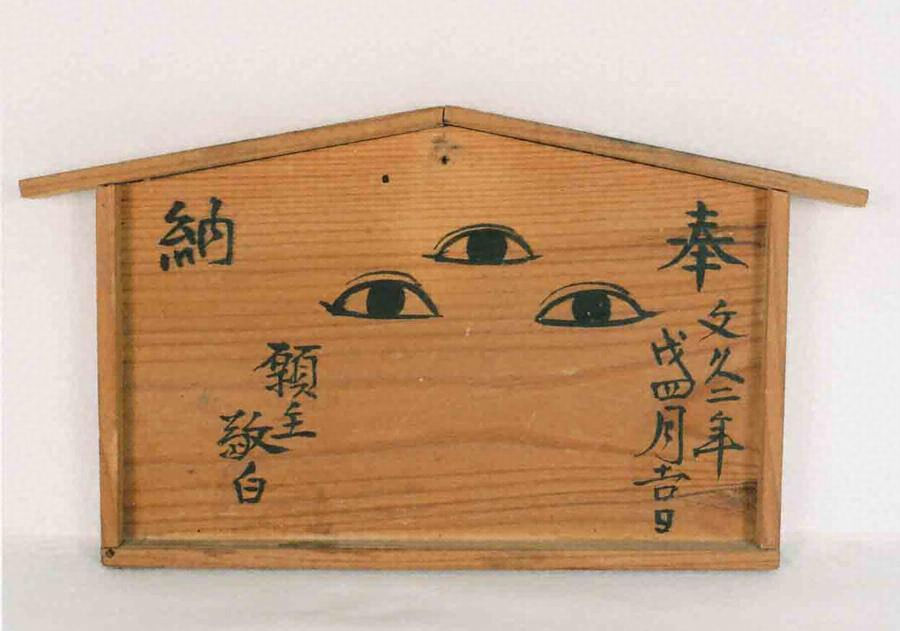 奉
文久二年
戌四月吉日
納
願主
敬白